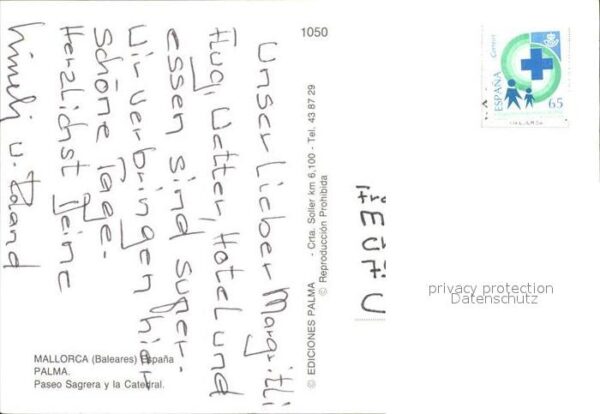 1050
Unser lieber Margritli
Flug, Wetter, Hotel und
essen sind super.
Wir verbringen hier
Schöne Tage.
Herzlichst Deine
u.
MALLORCA (Baleares) España
PALMA.
Paseo Sagrera y la Catedral.
© EDICIONES PALMA - Crta. Soller km 6,100 - Tel. 43 87 29
© Reproducción Prohibida
Correos
ESPAÑA
65
privacy protection
Datenschutz